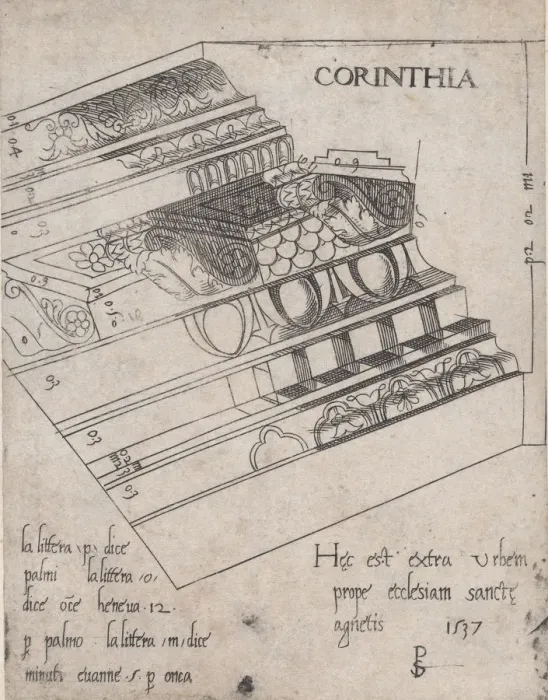 CORINTHIA
04
03
0.9
0.9
p2 02 m1
03
03
03
la littera p dice
palmi la littera /o/
dice oče heneua .12.
p palmo la littera /m/ dice
minuti euanne .5. p onca
Hęc est extra Urbem
prope ecclesiam sanctę
agnetis 1537